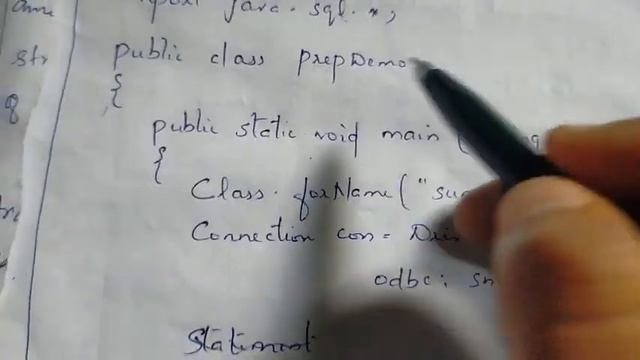 java.sql.*;
str public class prepDemo
q {
public static void main (
{
Class.forName("su
Connection con = Dri
odbc: sn
Statement